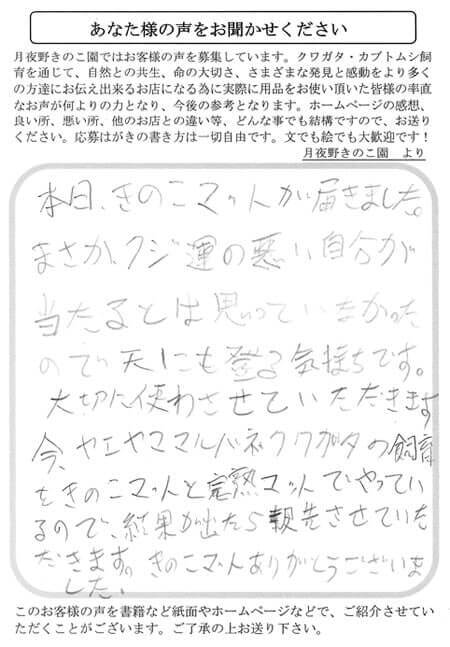 あなた様の声をお聞かせください
月夜野きのこ園ではお客様の声を募集しています。クワガタ・カブトムシ飼
育を通じて、自然との共生、命の大切さ、さまざまな発見と感動をより多く
の方達にお伝え出来るお店になる為に実際に用品をお使い頂いた皆様の率直
なお声が何よりの力となり、今後の参考となります。ホームページの感想、
良い所、悪い所、他のお店との違い等、どんな事でも結構ですので、お送り
ください。応募はがきの書き方は一切自由です。文でも絵でも大歓迎です！
月夜野きのこ園　より
本日、きのこマットが届きました。
まさか、クジ運の悪い自分が
当たるとは思っていなかった
ので天にも登る気持ちです。
大切に使わさせていただきます
今、ヤエヤママルバネクワガタの飼育
をきのこマットと完熟マットでやってい
るので、結果が出たら報告させていた
だきます。きのこマットありがとうございま
した。
このお客様の声を書籍など紙面やホームページなどで、ご紹介させてい
ただくことがございます。ご了承の上お送り下さい。